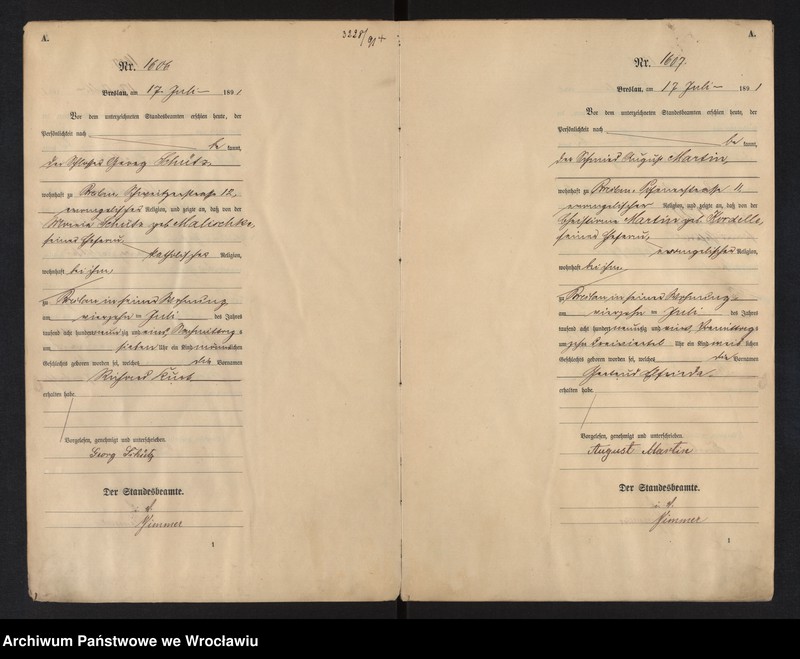 A.
3228/91+
Nr. 1606
Breslau, am 17. Juli 1891
Vor dem unterzeichneten Standesbeamten erschien heute, der
Persönlichkeit nach
be kannt,
der Schlosser Georg Schütz,
wohnhaft zu Breslau, Schweitzerstraße 12,
evangelischer Religion, und zeigte an, daß von der
Maria Schütz geb. Malischke,
seiner Ehefrau,
katholischer Religion,
wohnhaft bei ihm,
zu Breslau in seiner Wohnung
am vierzehn ten Juli des Jahres
tausend acht hundert neunzig und eins, Nachmittag s
um sieben Uhr ein Kind männlichen
Geschlechts geboren worden sei, welches die Vornamen
Richard Kurt
erhalten habe.
Vorgelesen, genehmigt und unterschrieben.
Georg Schütz
Der Standesbeamte.
i. V.
Zimmer
1
A.
Nr. 1607.
Breslau, am 17 Juli 1891
Vor dem unterzeichneten Standesbeamten erschien heute, der
Persönlichkeit nach
be kannt,
der Schmied August Martin,
wohnhaft zu Breslau, 11
evangelischer Religion, und zeigte an, daß von der
Martin geb.
seiner Ehefrau,
evangelischer Religion,
wohnhaft bei ihm,
zu Breslau in seiner Wohnung
am vierzehn ten Juli des Jahres
tausend acht hundert neunzig und eins, Vormittag s
um zehn dreiviertel Uhr ein Kind weib lichen
Geschlechts geboren worden sei, welches die Vornamen
Gertrud Elfrieda
erhalten habe.
Vorgelesen, genehmigt und unterschrieben.
August Martin
Der Standesbeamte.
i. V.
Zimmer
1
Archiwum Państwowe we Wrocławiu